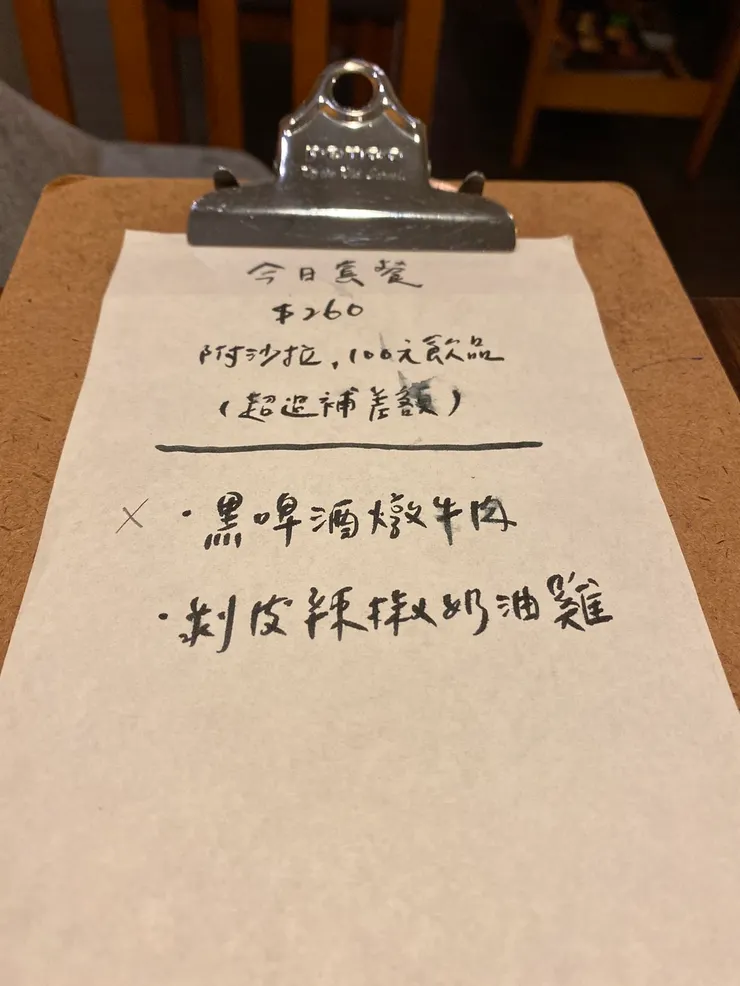 今日套餐
$260
附沙拉,100元飲品
(超過補差額)
× ・黑啤酒燉牛肉
・剝皮辣椒奶油雞